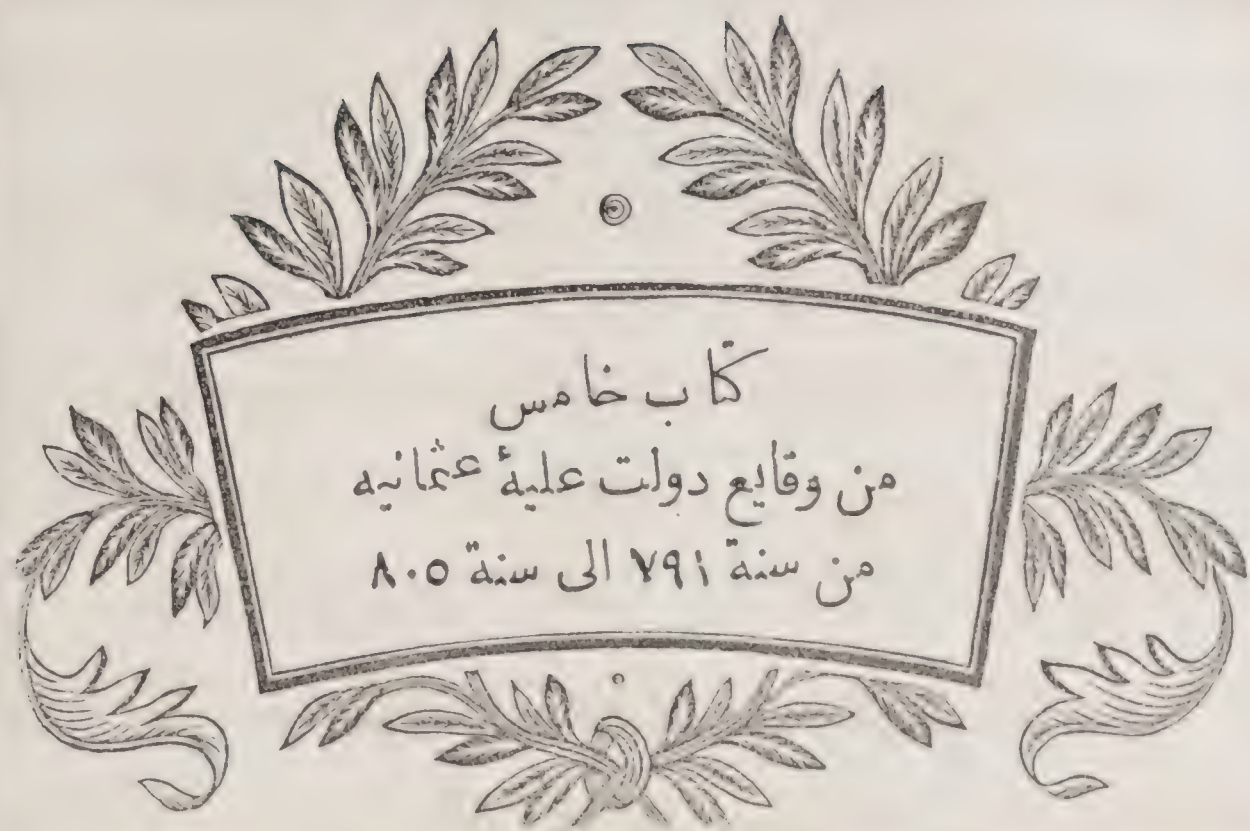 كتاب خامس
من وقايع دولت عليۀ عثمانيه
من سنة ٧٩١ الى سنة ٨٠٥